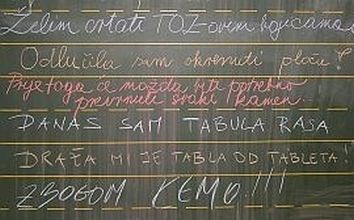 Želim crtati TOZ-ovim bojicama
Odlučila sam okrenuti ploču!
Prije toga će možda biti potrebno
prevrnuti svaki kamen...
DANAS SAM TABULA RASA
DRAŽA MI JE TABLA OD TABLETA!
ZBOGOM KEMO!!!